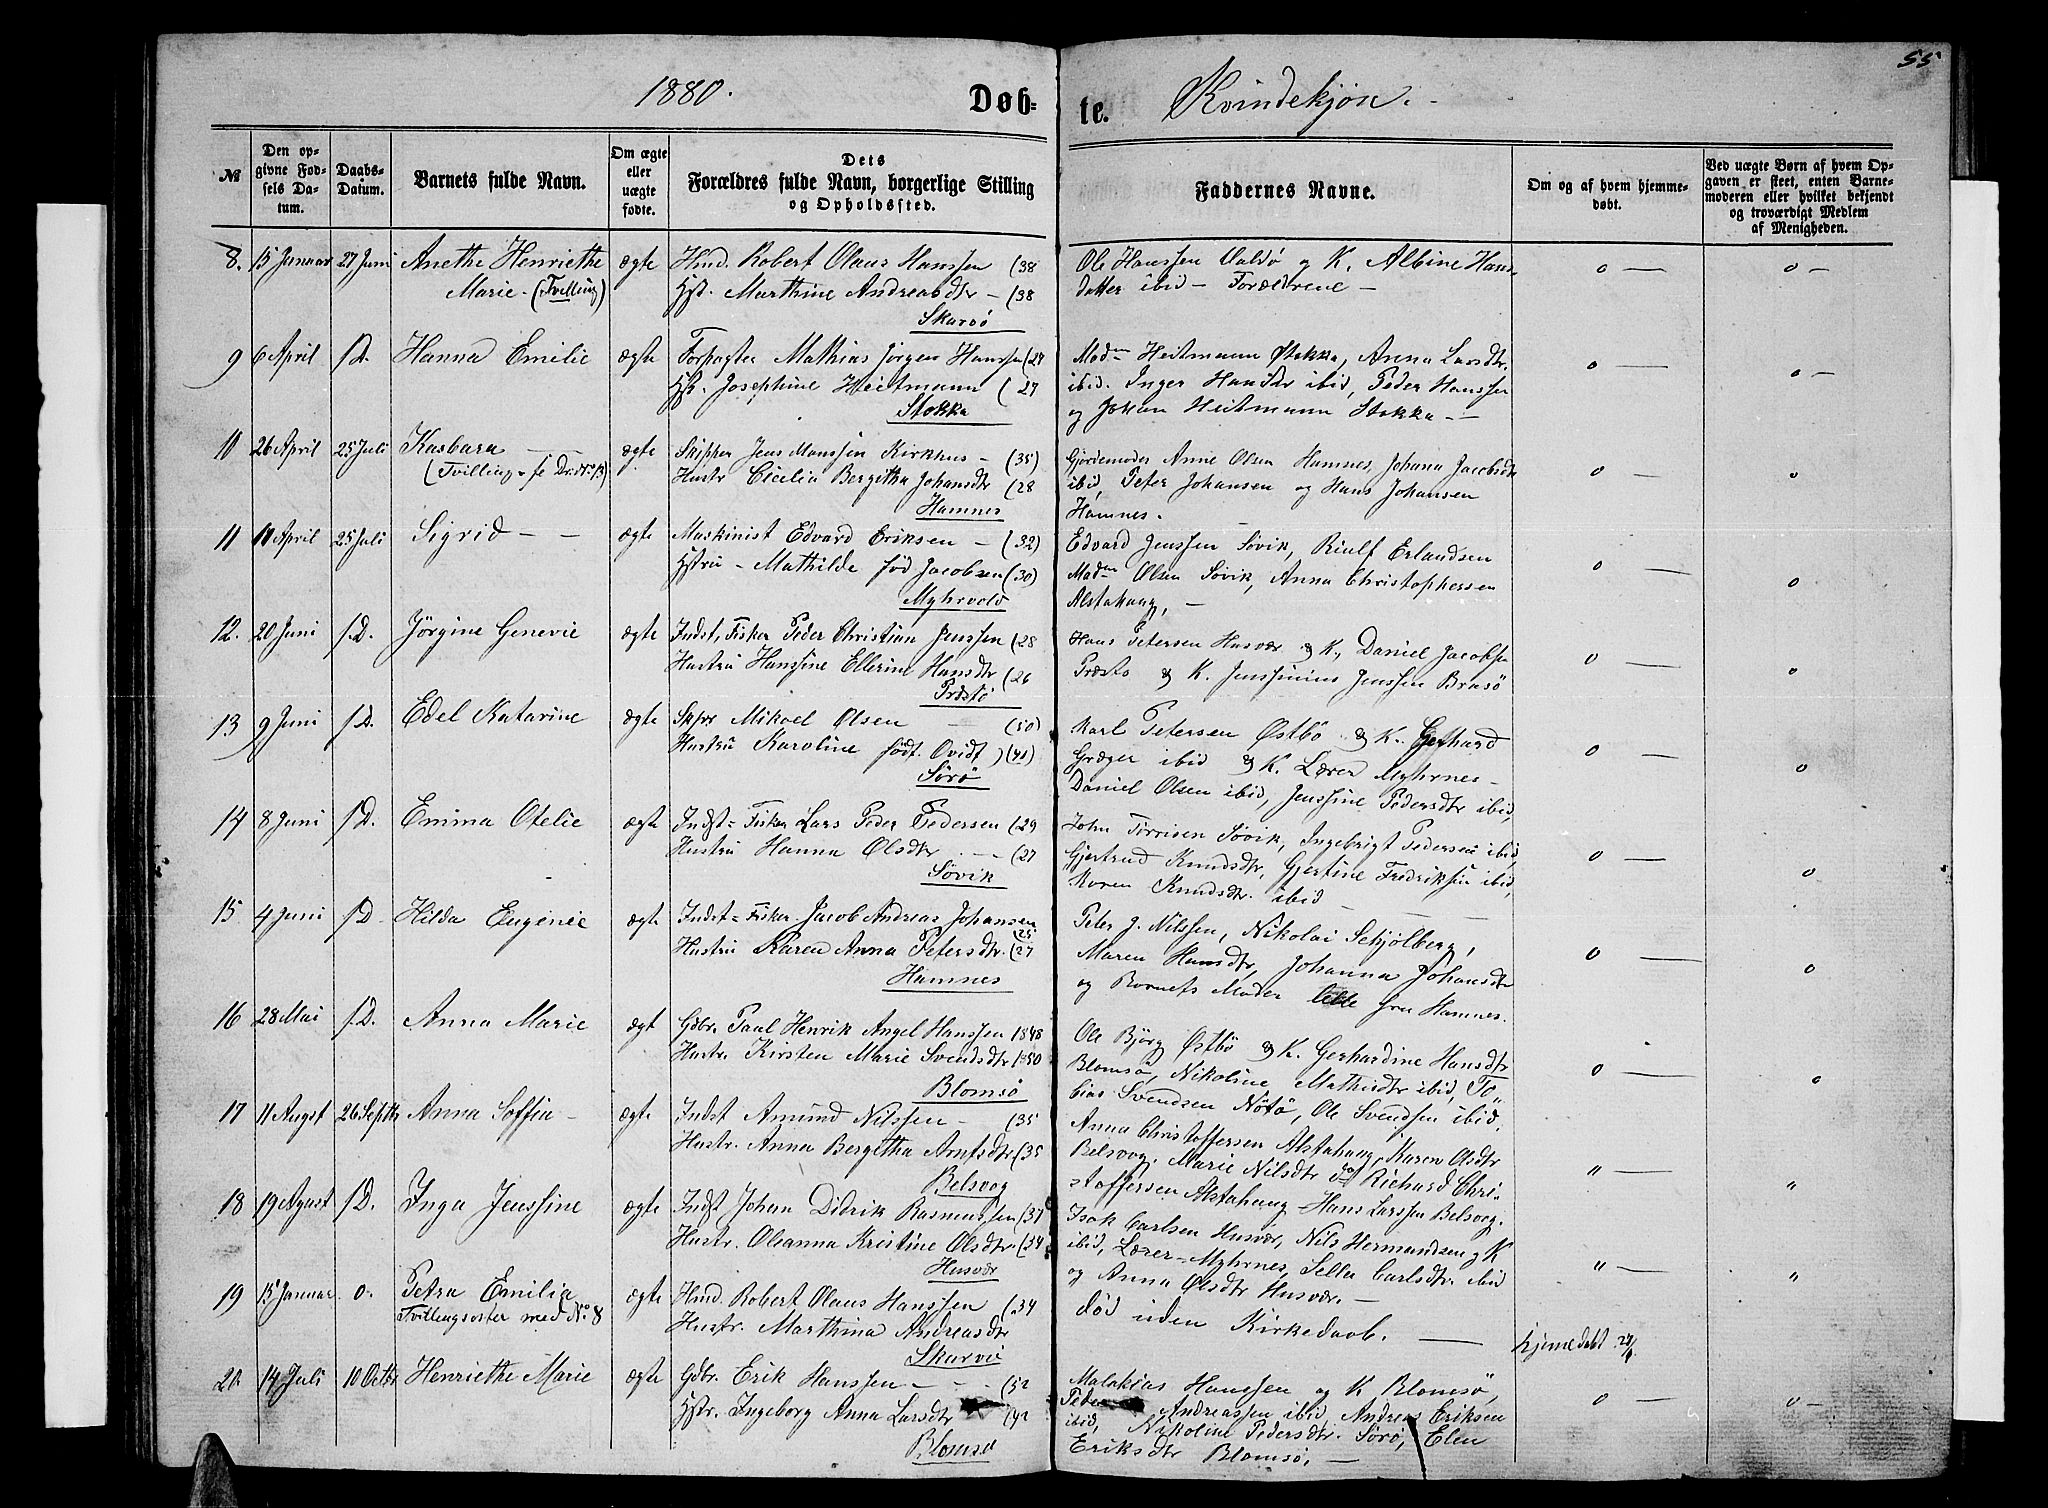 55
1880.
Døb-
te.
Kvindekjøn.
№
Den op-
givne Fød-
sels Da-
tum.
Daabs-
Datum.
Barnets fulde Navn.
Om ægte
eller
uægte
fødte.
Dets
Forældres fulde Navn, borgerlige Stilling
og Opholdssted.
Faddernes Navne.
Om og af hvem hjemme-
døbt.
Ved uægte Børn af hvem Op-
gaven er skeet, enten Barne-
moderen eller hvilket bekjendt
og troværdigt Medlem
af Menigheden.
8. 15 Januar 27 Juni Anethe Henriethe ægte Hmd. Robert Olaus Hanssen (38
Marie - (Tvilling) Hst. Marthine Andreasdtr - (38
Skarsø
Ole Hanssen Valdø og K. Albine Hans-
datter ibid - Forældrene -
o - o -
9 6 April s.D. Hanna Emilie ægte Forpagter Mathias Jørgen Hanssen (24
Hst. Josephine Heitmann (27
Stokka
Madm Heitmann Stokka, Anna Larsdtr.
ibid. Inger Hansdtr ibid, Peder Hanssen
og Johan Heitmann Stokka -
o - o -
10 26 April 25 Juli Kasbara ægte Skipper Jens Monssen Kirkhus - (35)
(Tvilling - se Dr. No 13) Hustr Cicilia Bergitha Johansdtr (28
Hamnes
Gjordemoder Anne Olsen Hamnes, Johana Jacobsdtr
ibid, Peter Johansen og Hans Johansen
Hamnes.
o - o
11 11 April 25 Juli Sigrid - - ægte Maskinist Edvard Eriksen - (32)
Hstru - Mathilde fød Jacobsen (30)
Myhrvold
Edvard Jenssen Søvik, Riulf Erlandsen
Madm Olsen Søvik, Anna Christophersen
Alstahaug, -
o - o
12. 20 Juni s.D. Jørgine Genevie ægte Indst, Fisker Peder Christian Jenssen (28
Hustru Hanssine Ellerine Hansdtr (26
Præstø
Hans Petersen Husvær & K., Daniel Jacobsen
Præstø & K. Jenssinius Jenssen Brasø
o - o
13 9 Juni s.D. Edel Katarine ægte Skprs Mikael Olsen - (50)
Hustru Karoline født Ovidt) (41)
Sørø
Karl Petersen Østbø & K. Gerhard
Græger ibid & K. Lærer Myhrnes -
Daniel Olsen ibid, Jenssine Pedersdtr ibid,
o - o
14 8 Juni s.D. Emma Otelie ægte Indst = Fisker Lars Peder Pedersen (29
Hustru Hanna Olsdtr - (27
Søvik
John Torrisen Søvik, Ingebrigt Pedersen ibid,
Gjertrud Knudsdtr, Gjertine Fredriksen ibid,
Karen Knudsdtr. ibid -
o - o
15 4 Juni s.D. Hilda Eugenie ægte Indst = Fisker Jacob Andreas Johansen
(25
Hustru Karen Anna Petersdtr. (27
Hamnes
Peter J. Nilssen, Nikolai Schjølberg,
Maren Hansdtr, Johanna Johansdtr
og Barnets Moder fra Hamnes.
o - o
16 28 Mai s.D. Anna Marie ægt Gdbr. Paul Henrik Angel Hanssen 1848
Hustr. Kirsten Marie Svendsdtr 1850
Blomsø
Ole Bjørg Østbø & K. Gerhardine Hansdtr
Blomsø, Nikoline Mathisdtr ibid, To-
bias Svendsen Nötø, Ole Svendsen ibid.
o - o
17 11 Augst 26 Septbr Anna Soffia - ægte Indst Amund Nilssen - (35
Hustr. Anna Bergitha Arntsdtr (35
Belsvog
Anna Christoffersen Alstahaug, Karen Olsdtr
Belsvog. Marie Nilsdtr do Richard Chri-
stoffersen Alstahaug Hans Larssen Belsvog.
" - "
18 19 Agust s.D. Inga Jenssine ægte Indst Johan Didrik Rasmussen (37
Hustr. Oleanna Kristine Olsdtr. (34
Husvær
Isak Carlsen Husvær, Nils Hermandsen og K
ibid, Lærer Myhrnes, Sella Carlsdtr. ibid
og Anna Olsdtr Husvær. -
" - "
19 15 Januar o. Petra Emilia ægte Hmd. Robert Olaus Hanssen (34
Tvillingsøster med No 8 Hustr. Marthina Andreasdtr
Skarvø
død uden Kirkedaab. -
hjemedøbt 27/1
20 14 Juli 10 Octbr Henriethe Marie ægte Gdbr. Erik Hanssen - - - (52
Hstr. Ingeborg Anna Larsdtr (42
Blomsø
Malakias Hanssen og K Blomsø,
Peder Andreassen ibid, Andreas Eriksen
ibid, Nikoline Pedersdtr. Sørø, Elen
Eriksdtr Blomsø, -
o - o -